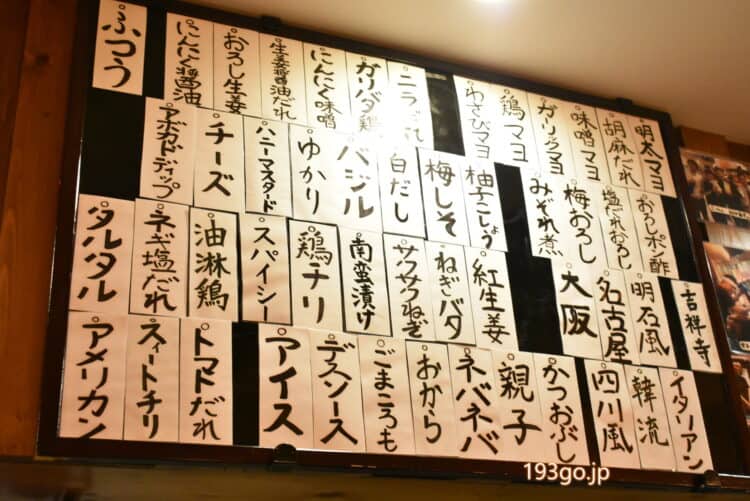 明太マヨ
胡麻だれ
味噌マヨ
ガーリックマヨ
鶏マヨ
わさびマヨ
ニラだれ
ガリバタ鶏
にんにく味噌
生姜醤油だれ
おろし生姜
にんにく醤油
ふつう
おろしポン酢
塩だれおろし
梅おろし
みぞれ煮
柚子こしょう
梅しそ
白だし
バジル
ゆかり
ハニーマスタード
チーズ
アボカドディップ
吉祥寺
明石風
名古屋
大阪
紅生姜
ねぎバタ
サクサクねぎ
南蛮漬け
鶏チリ
スパイシー
油淋鶏
ネギ塩だれ
タルタル
イタリアン
韓流
四川風
かつおぶし
親子
ネバネバ
おから
ごまころも
デスソース
アイス
トマトだれ
スィートチリ
アメリカン
193go.jp